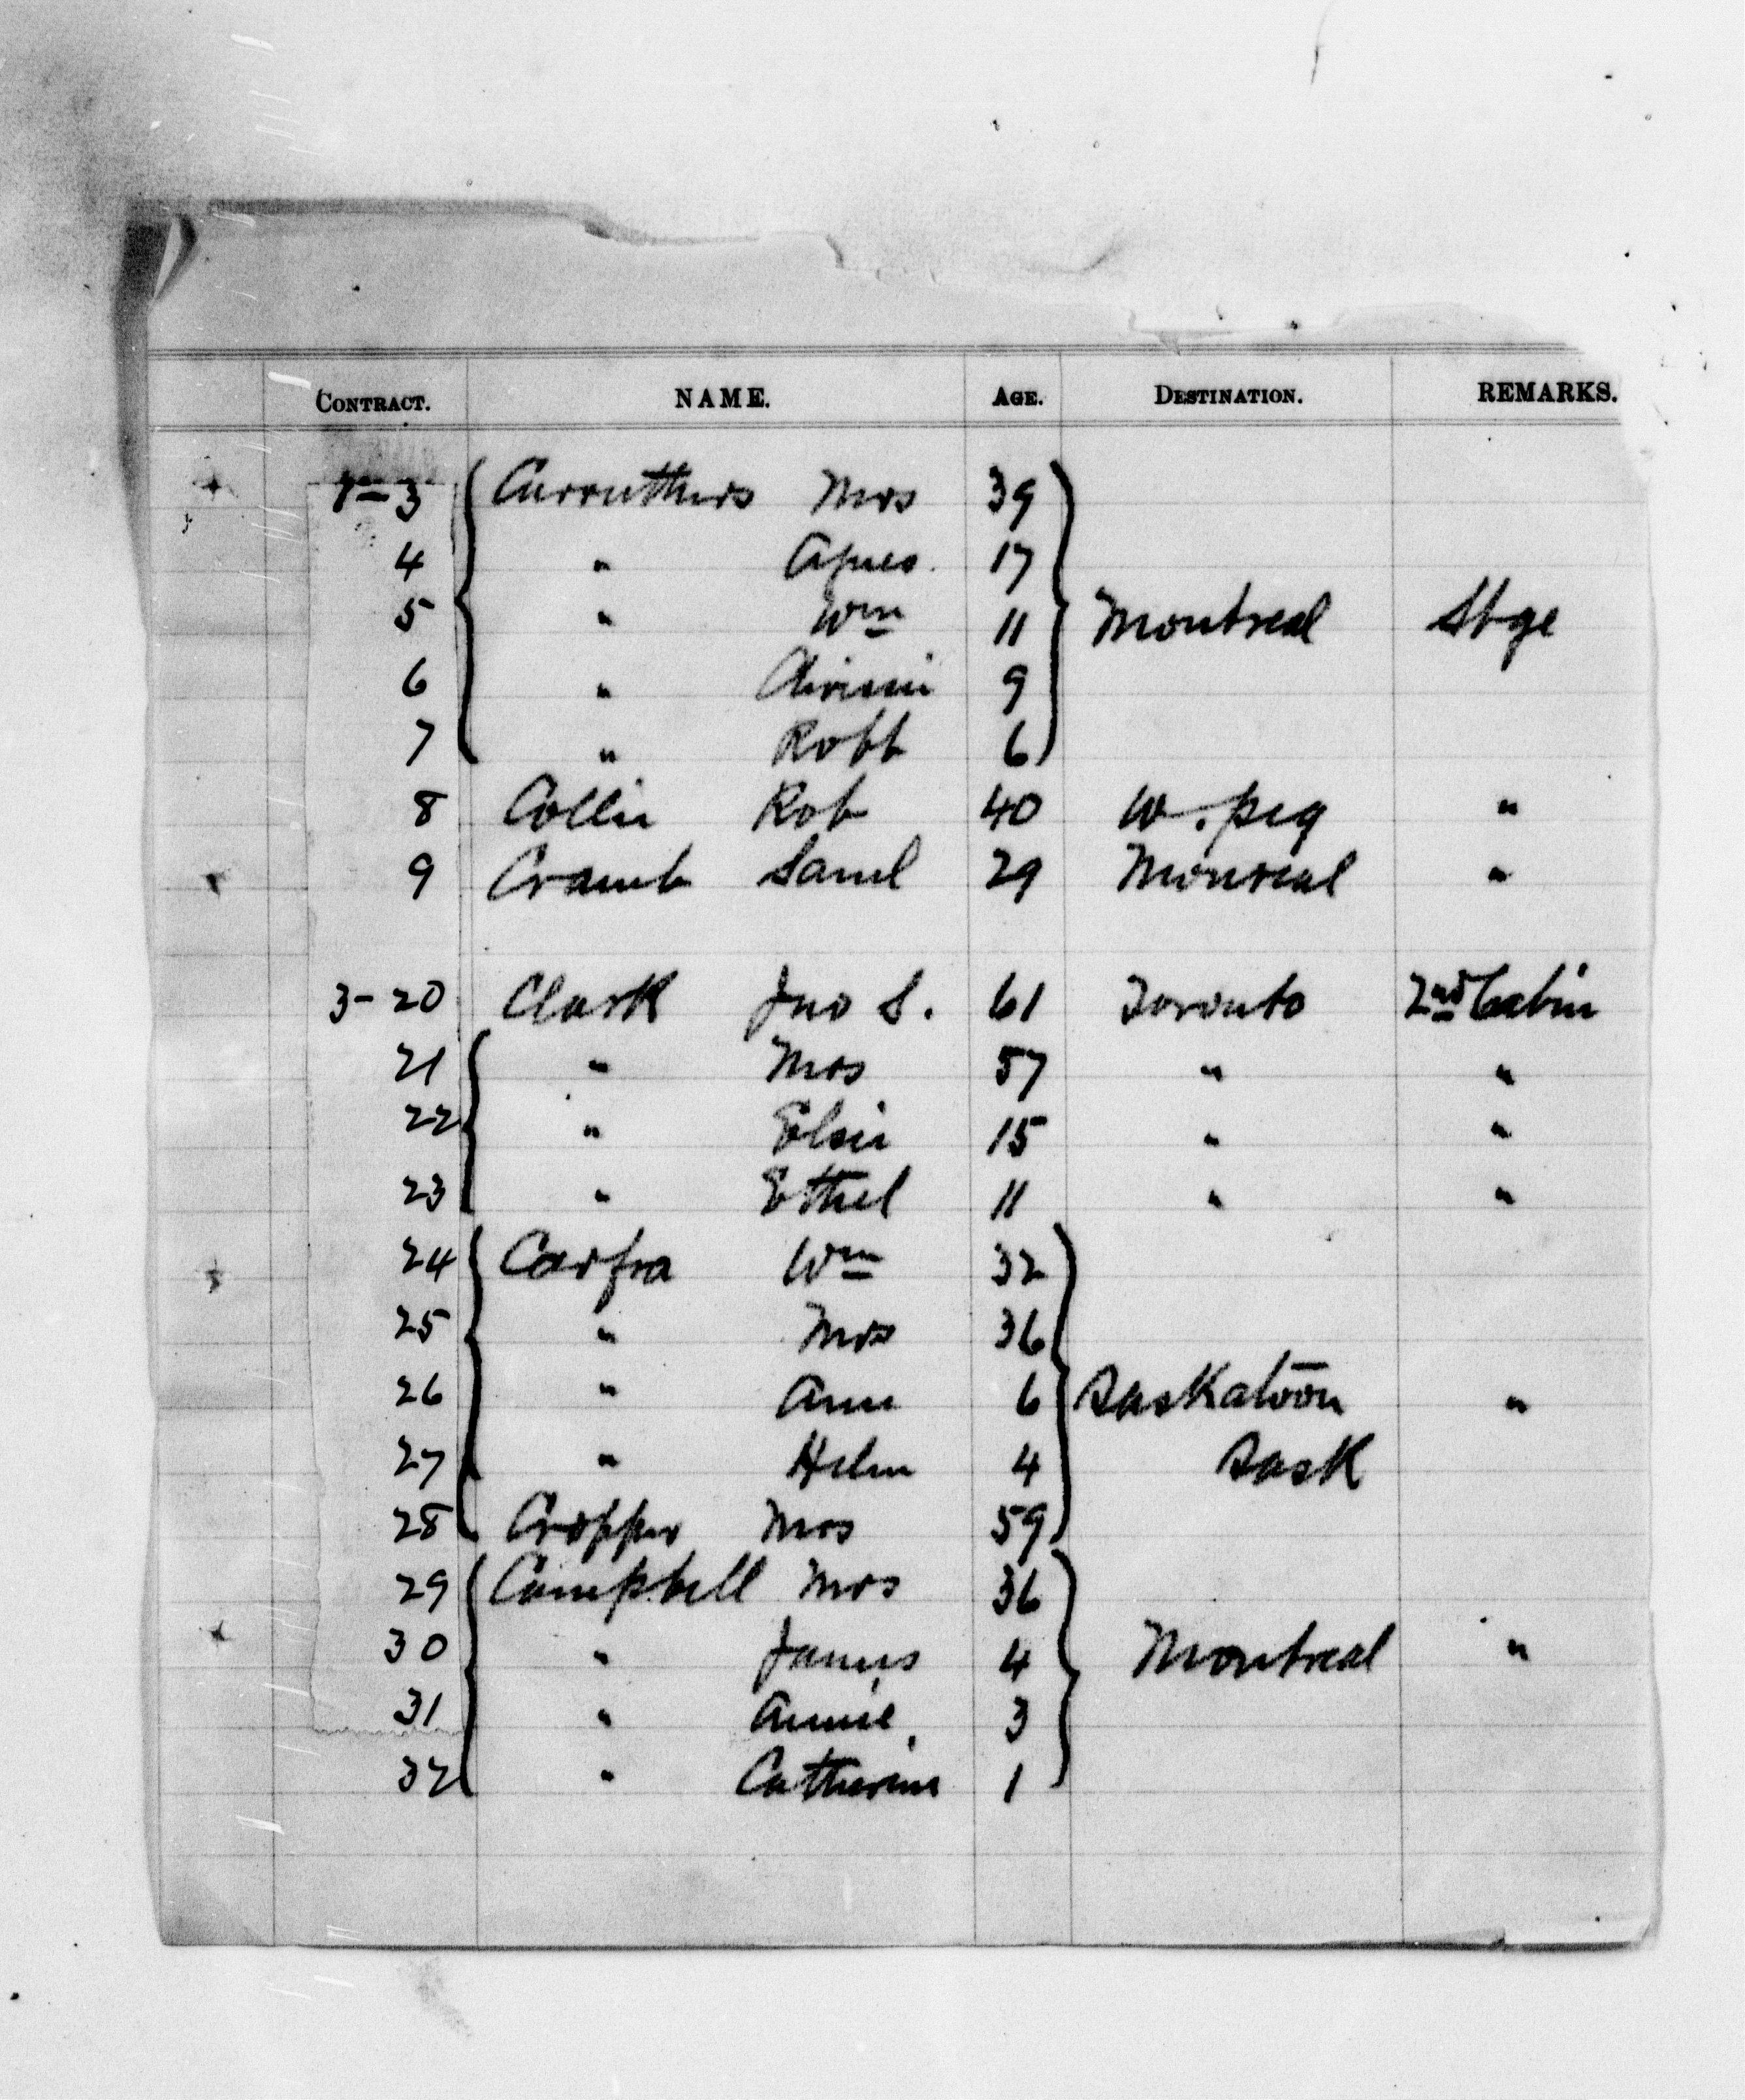 CONTRACT. NAME. AGE. DESTINATION. REMARKS.
1-3 Carruthers Mrs 39
4 " Agnes. 17
5 " Wm 11 Montreal Stge
6 " 9
7 " Robt 6
8 Collie Rob 40 W.peg "
9 Cramb Saml 29 Monreal "
3-20 Clark Jno S. 61 Toronto 2nd Cabin
21 " Mrs 57 " "
22 " Elsie 15 " "
23 " Ethel 11 " "
24 Carfra Wm 32
25 " Mrs 36
26 " Ann 6 Saskatoon "
27 " Helen 4 Sask
28 Cropper Mrs 59
29 Campbell Mrs 36
30 " James 4 Montreal "
31 " Annie 3
32 " Catherine 1